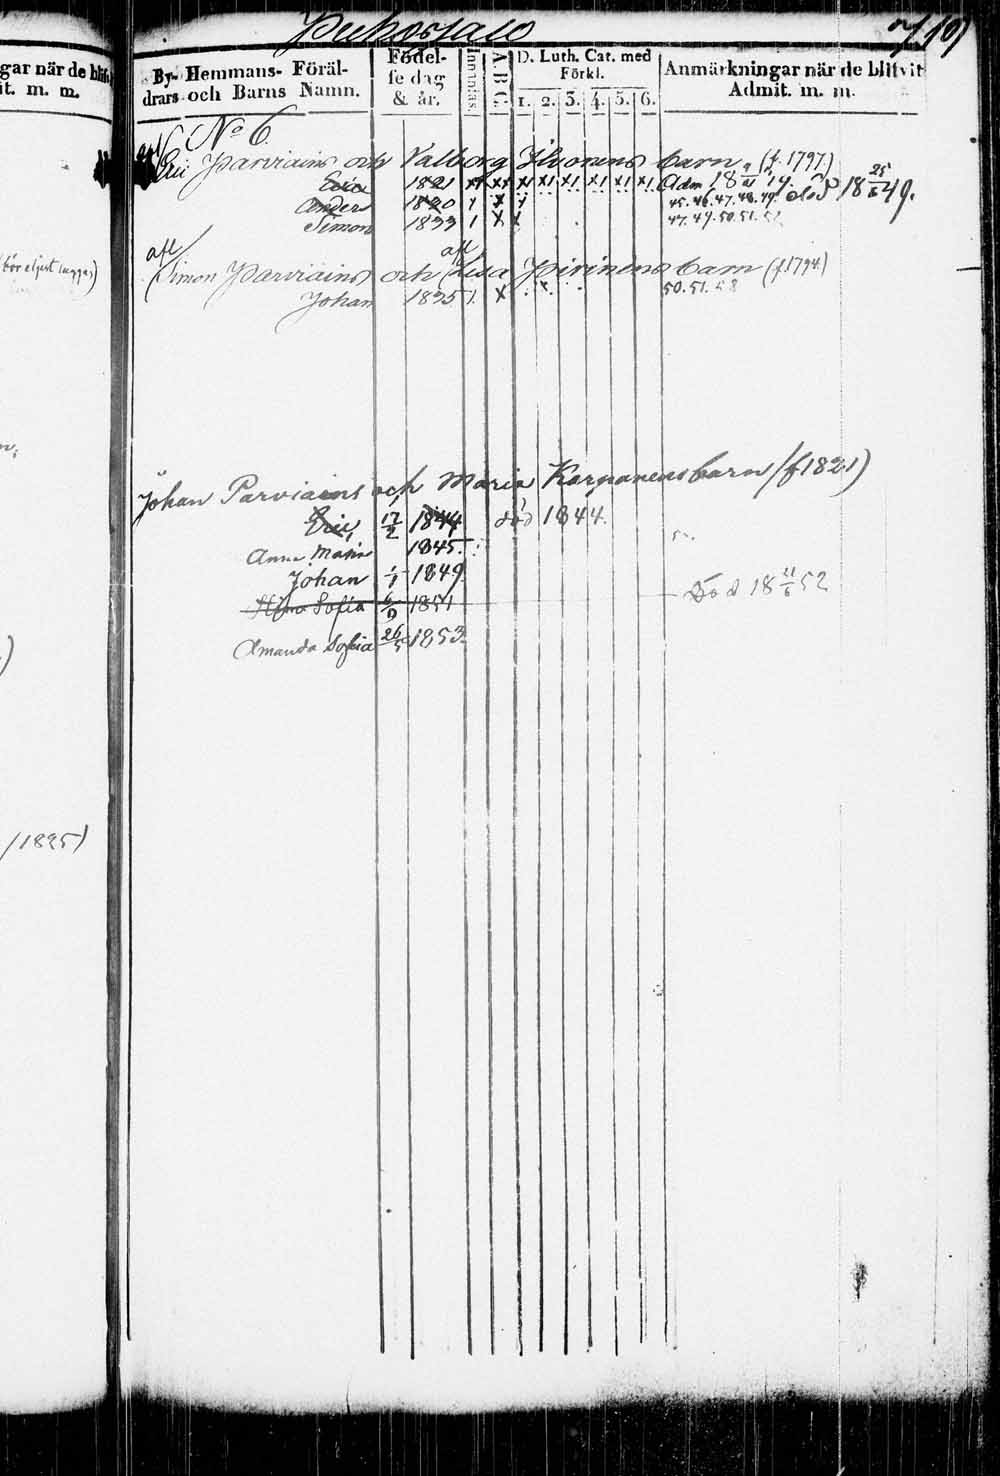 Pukossalo 719)
gar när de blifvi
it. m. m.
By- Hemmans- Föräl-
drars och Barns Namn.
Födel-
se dag
& år.
Innanläs.
A B C.
D. Luth. Cat. med
Förkl.
1. 2. 3. 4. 5. 6.
Anmärkningar när de blifvit
Admit. m. m.
No 6.
afl Eric Parviains och Valborg Ikonens barn (f. 1797.)
Eric 1821 Adm 18 49. död 18 25/6 49.
Anders 1830 45. 46. 47. 48. 49.
Simon 1833 47. 49. 50. 51. 52
afl Simon Parviains och afl Lisa Pirinens barn (f. 1794)
Johan 1835 50. 51. 53
Johan Parviains och Maria Karpanens barn (f 1821)
Eric, 17/2 1844 död 1844.
Anna Maria 1845.
Johan 1/1 1849.
Sofia 6/9 1851 Död 18 11/6 52
Amanda Sofia 26/5 1853.
/1825)